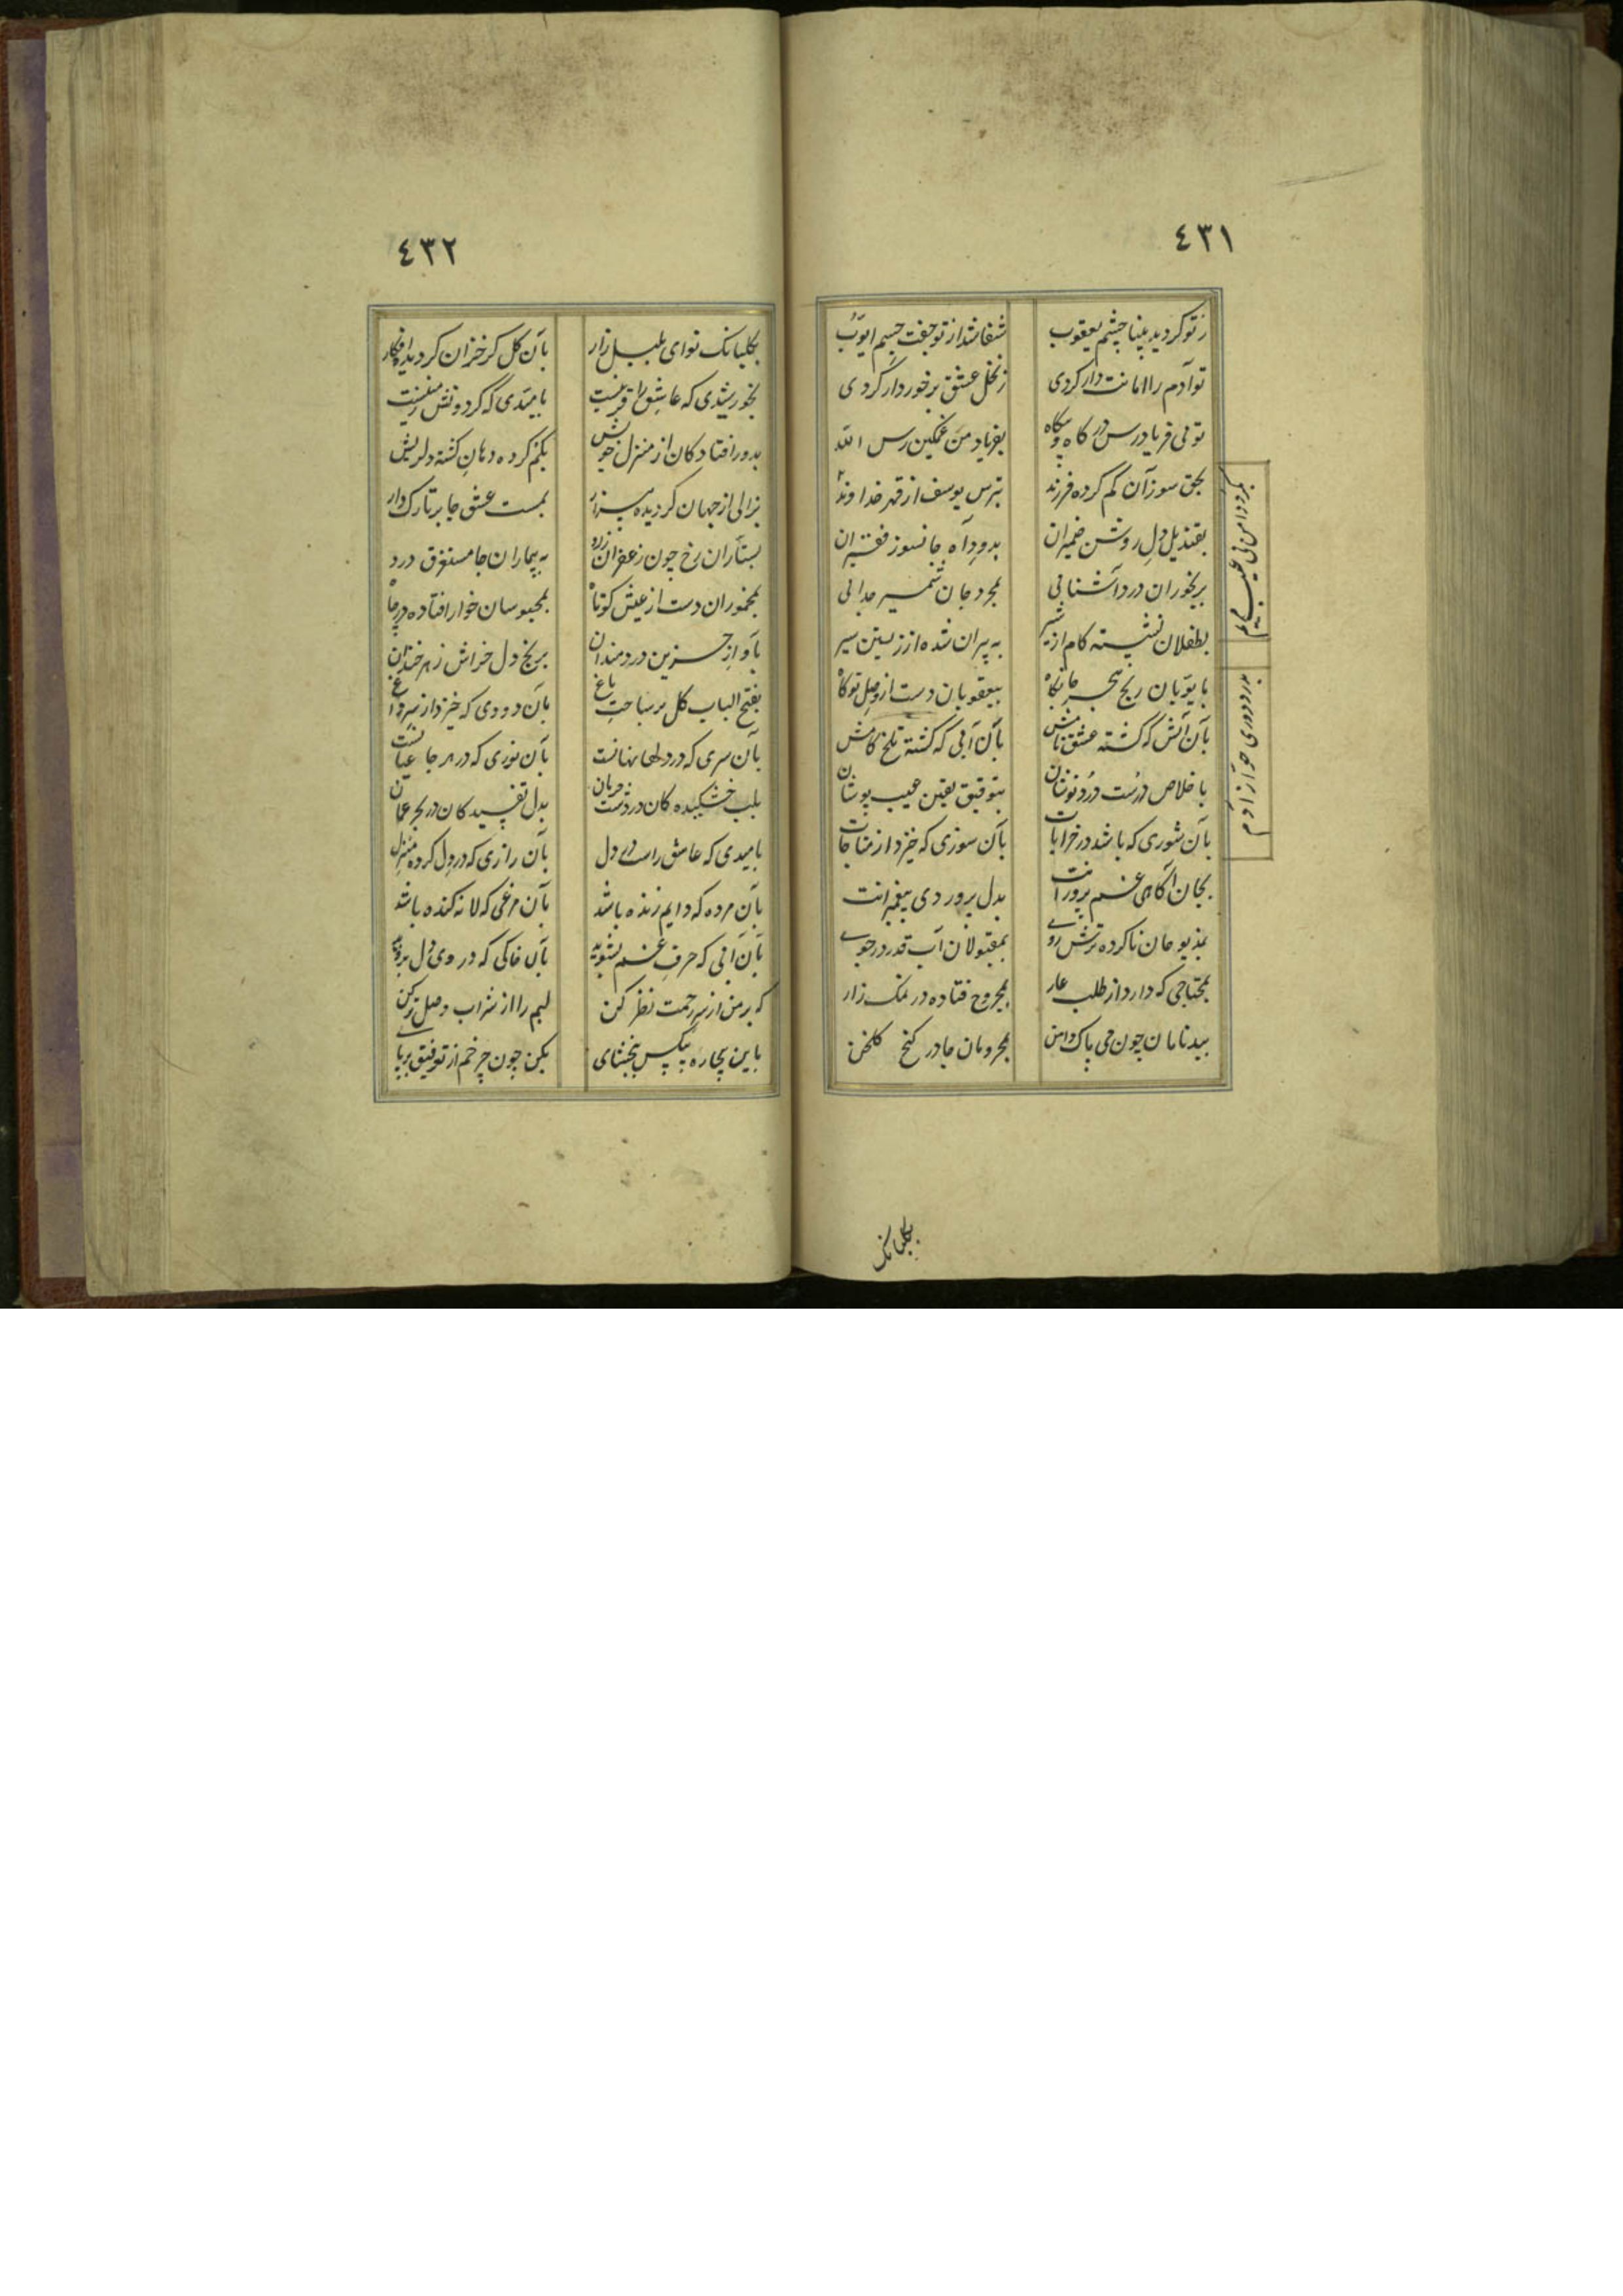 ٤٣١
ز تو کردید بینا چشم یعقوب
شفا شد از تو جفت جسم ایوب
تو آدم را امانت دار کردی
ز نخل عشق برخوردار کردی
توئی فریادرس در کاه و بیکاه
بفریاد من غمکین رس الله
بحق سوز آن کم کرده فرزند
بترس یوسف از قهر خداوند
بقندیل دل روشن ضمیران
بدود آه جانسوز فقیران
برنجوران درد آشنائی
بمجروحان شمشیر جدائی
بطفلان نشسته کام از شیر
به پیران شده از زیستن سیر
بایوبان رنج هجر جانکاه
بیعقوبان دست از وصل کوتاه
بآن آتش که کشته عشق نامش
بآن آبی که کشته تلخ کامش
باخلاص درست دردنوشان
بتوفیق یقین عیب پوشان
بآن شوری که باشد در خرابات
بآن سوزی که خیزد از مناجات
بجان آکاهی غم پرورانت
بدل پروردی پیغمبرانت
بمذبوحان ناکرده ترش روی
بمقبولان آب قدر در جوی
بمحتاجی که دارد از طلب عار
بمجروح فتاده در نمک زار
ببدنامان چون می پاک دامن
بمحرومان جا در کنج کلخن
بدرد دوری حوا ز آدم
بکلبانک
٤٣٢
بکلبانک نوای بلبل زار
بآن کل کز خزان کردید افکار
بخورشیدی که عاشق را قرینست
بامیدی که کردونش زمینست
بدور افتادکان از منزل خویش
بکم کرده دهان کشته دلریش
بزالی از جهان کردیده بیزار
بمست عشق جا بر تارک دار
بستاران رخ چون زعفران زرد
به بیماران جا مستغرق درد
بمخموران دست از عیش کوتاه
بمحبوسان خوار افتاده در چاه
بآواز حزین دردمندان
برنج دل خراش زهرخندان
بفتح الباب کل بر ساحت باغ
بآن دودی که خیزد از سر داغ
بآن سری که در دلها نهانست
بآن نوری که در هر جا عیانست
بلب خشکیده کان در دشت حرمان
بدل تفسیده کان در بحر عمان
بامیدی که عاشق راست در دل
بآن رازی که در دل کرده منزل
بآن مرده که دایم زنده باشد
بآن مرغی که لانه کنده باشد
بآن آبی که حرف غم بشوید
بآن خاکی که در وی دل بروید
که بر من از سر رحمت نظر کن
لبم را از شراب وصل تر کن
باین بیچاره بیکس ببخشای
بکن چون چرخم از توفیق برپای